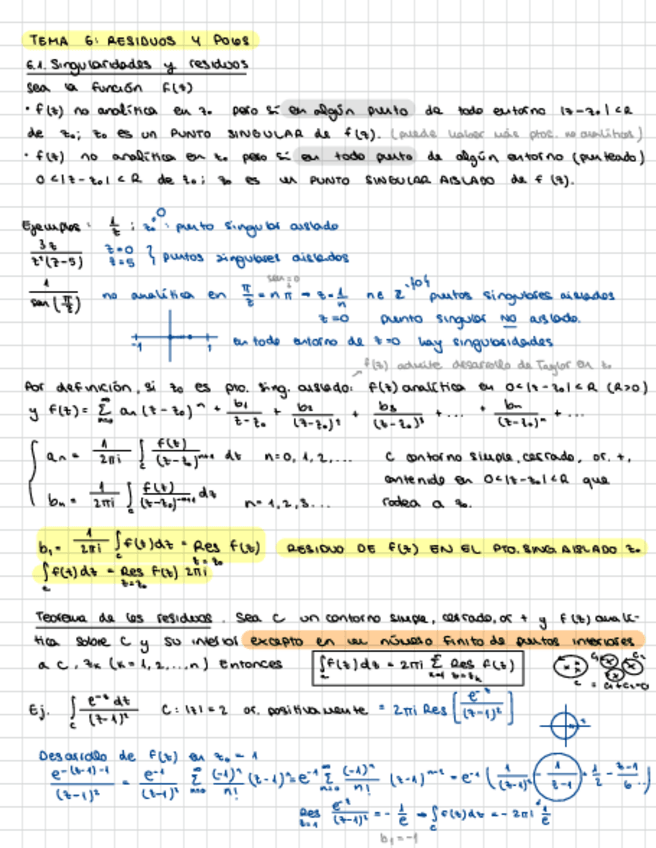 TEMA 6: RESIDUOS Y POLOS
6.1. Singularidades y residuos
Sea la función f(z)
· f(z) no analítica en z₀ pero sí en algún punto de todo entorno |z-z₀|<R
de z₀; z₀ es un PUNTO SINGULAR de f(z). (puede haber más ptos. no analíticos)
· f(z) no analítica en z₀ pero sí en todo punto de algún entorno (punteado)
0<|z-z₀|<R de z₀; z₀ es un PUNTO SINGULAR AISLADO de f(z).
Ejemplos: 1/z ; z=0: punto singular aislado
3z/(z²(z-5)) z=0 z=5 } puntos singulares aislados
sen=0
1/sen(π/z) no analítica en π/z = nπ → z=1/n n∈Z-{0} puntos singulares aislados
z=0 punto singular NO aislado.
-1 1 en todo entorno de z=0 hay singularidades
f(z) admite desarrollo de Taylor en z₀
Por definición, si z₀ es pto. sing. aislado: f(z) analítica en 0<|z-z₀|<R (R>0)
y f(z) = Σ_{n=0}^∞ aₙ(z-z₀)ⁿ + b₁/(z-z₀) + b₂/(z-z₀)² + b₃/(z-z₀)³ + ... + bₙ/(z-z₀)ⁿ + ...
aₙ = 1/(2πi) ∫_c f(z)/(z-z₀)ⁿ⁺¹ dz n=0, 1, 2,... C contorno simple, cerrado, or. +,
contenido en 0<|z-z₀|<R que
bₙ = 1/(2πi) ∫_c f(z)/(z-z₀)⁻ⁿ⁺¹ dz n=1, 2, 3... rodea a z₀.
b₁ = 1/(2πi) ∫_c f(z)dz = Res_{z=z₀} f(z) RESIDUO DE f(z) EN EL PTO. SING AISLADO z₀
∫_c f(z)dz = Res_{z=z₀} f(z) 2πi
Teorema de los residuos. Sea C un contorno simple, cerrado, or + y f(z) analí-
tica sobre C y su interior excepto en un número finito de puntos interiores
a C, zₖ (k=1,2,...,n) entonces ∫_c f(z)dz = 2πi Σ_{k=1}^n Res_{z=zₖ} f(z)
Ej. ∫_c e⁻ᶻ dz/(z-1)² C: |z|=2 or. positivamente = 2πi Res[e⁻ᶻ/(z-1)²]
Desarrollo de f(z) en z₀=1
e^{-(z-1)-1}/(z-1)² = e⁻¹/(z-1)² Σ_{n=0}^∞ (-1)ⁿ/n! (z-1)ⁿ = e⁻¹ Σ_{n=0}^∞ (-1)ⁿ/n! (z-1)ⁿ⁻² = e⁻¹ (1/(z-1)² - 1/(z-1) + 1/2 - (z-1)/6 ...)
Res_{z=1} e⁻ᶻ/(z-1)² = -1/e → ∫_c f(z)dz = -2πi 1/e
b₁=-1